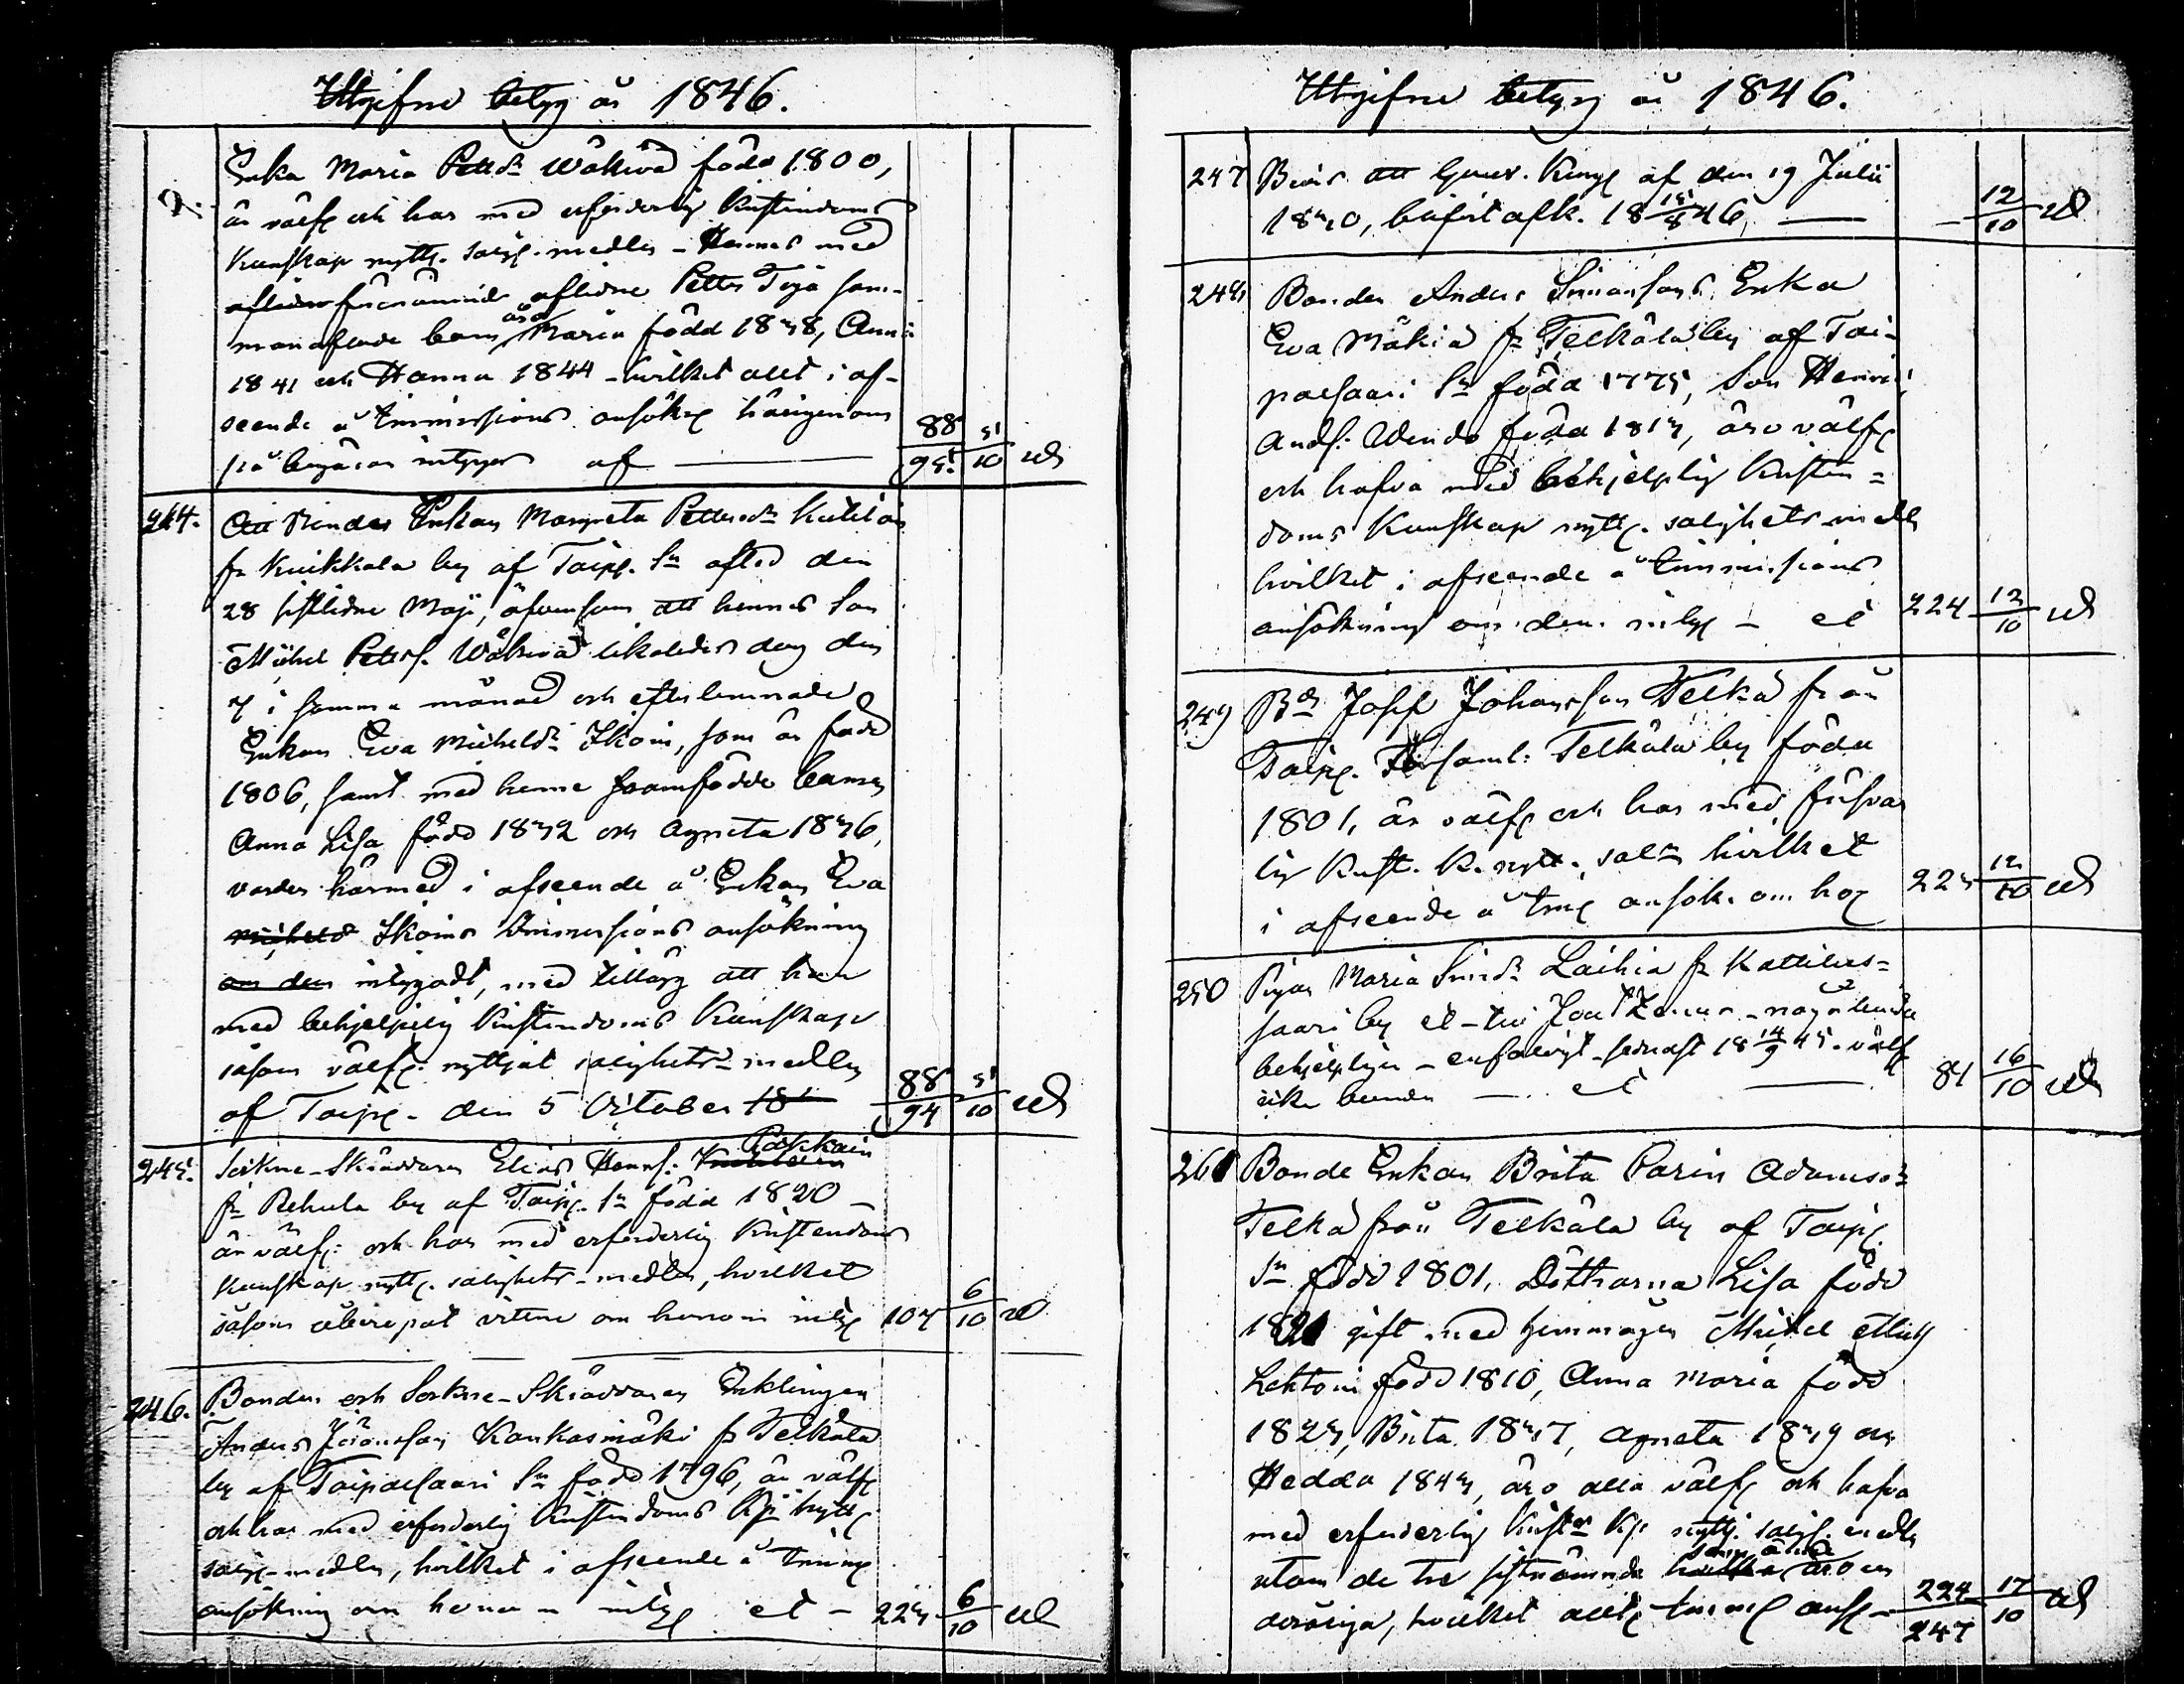 Utgifne betyg år 1846.
Enka Maria Petters dr Wäkevä född 1800,
är välfr och har med erforderlig Kristendoms
Kunskap nyttj. salig. medlen - Hennes med
aflidne förenämnde aflidne Petter Törö sam-
manaflade barn äro Maria född 1838, Anna
1841 och Hanna 1844 - hvilket allt i af-
seende å Immissions ansökng härigenom
på begäran intygar af — 88/95. 5/10
244. Att Bonde Enkan Margreta Pettersdr
fr Kuikkala by af Taip. Sn afled den
28 sistlidne Maji, äfvensom att hennes Son
Michel Petters. Wäkevä likaledes dog den
7 i samma månad och efterlemnade
Enkan Eva Michelsdr Ikoin, som är född
1806, samt med henne framfödde barnen
Anna Lisa född 1832 och Agneta 1836,
varder härmed i afseende å Enkan Eva
Michelsdr Ikoins Immissions ansökning
om den intygadt, med tillägg att hon
med behjelplig Kristendoms Kunskap
såsom välfr. nyttjat salighets-medlen
af Taip. den 5 October 18 88/94 5/10
245. Sockne-Skräddaren Elias Henrs. Päkkäin
fr Rehula by af Taip. Sn född 1820 -
är välfr: och har med erforderlig Kristendoms
Kunskap nyttj. salighets-medlen, hvilket
såsom åberopat vittne om honom intyg 107 6/10
246. Bonden och Sockne-Skräddaren Enklingen
Anders Jöransson Kankasmäki fr Telkälä
by af Taipalsaari Sn född 1796, är välfr
och har med erforderlig Kristendoms Kp nyttj
salig-medlen, hvilket i afseende å Immis
ansökning om honom intyg et - 223 6/10
Utgifne betyg år 1846.
247 Bevis att Guver. Kung af den 19 Julii
1830, blifvit afk. 18 46, — 12/10
248 Bonden Anders Simonsons Enka
Eva Mäkiä fr Telkälä by af Tai-
palsaari Sn född 1775, Son Henric
Ands: född 1813, äro välfr
och hafva med behjelplig Kristen-
doms Kunskap nyttj. salighets medlen
hvilket i afseende å Immissions
ansökning om dem intyg - et 224 12/10
249 Bd Josef Johansson Telkä från
Taip. Församl: Telkälä by född
1801, är välfr och har med försvar
lig Krist. K. nytt. sal m hvilket
i afseende å Img ansök. om hog 223 12/10
250 Pigan Maria Simsdr Laihia fr Kattelus-
saari by et - någorlunda
behjelpligen - enfaldigt - sednast 18 14/9 45. välfr
icke bunden — et — 84 16/10
261 Bonde Enkan Brita Carin Adamsdr
Telkä från Telkälä by af Taip.
Sn född 1801, Döttrarna Lisa född
1821 gift med hemmågen Michel
Lehtoin född 1810, Anna Maria född
1823, Brita 1837, Agneta 1839 och
Hedda 1843, äro alla välfr och hafva
med erforderlig Krist Kp nyttj. salig. medlen
utom de tre sistnämnde som ännu äro
oväriga, hvilket allt Immis ans - 224/247 17/10